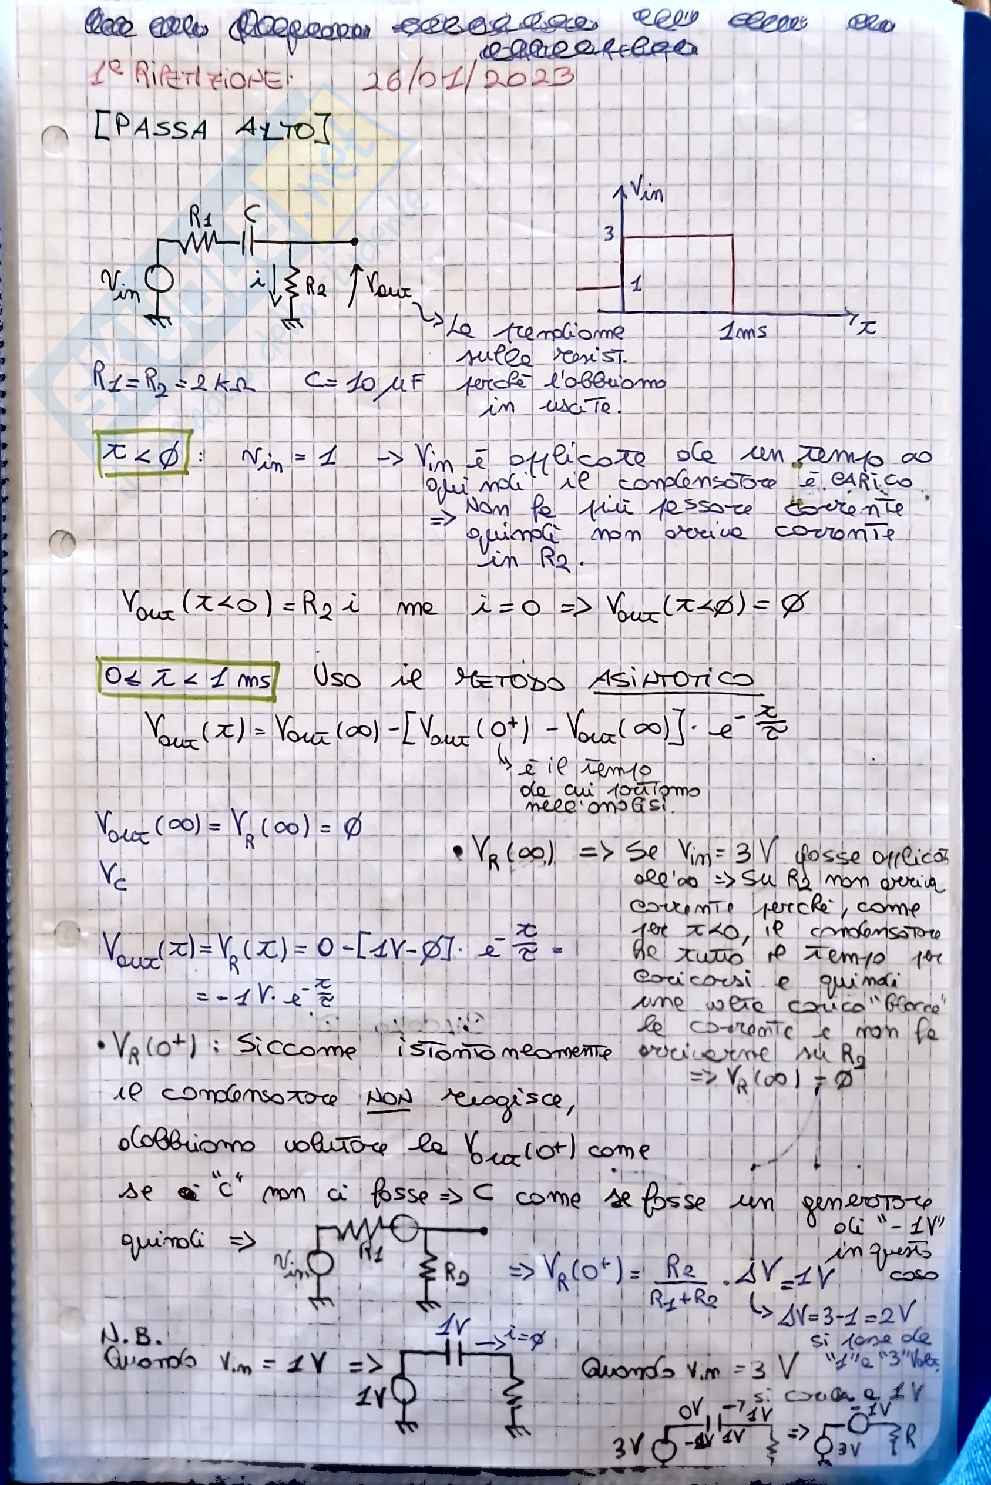 1ª RIPETIZIONE: 26/01/2023
[PASSA ALTO]
R1 C
Vin i R2 Vout
Vin
3
1
1ms t
↳ La prendiamo
sulla resist.
perché l'abbiamo
in uscita.
R1=R2=2kΩ C=10 μF
t<∅: Vin=1 → Vin è applicata da un tempo ∞
quindi il condensatore è CARICO.
=> Non fa più passare corrente
quindi non arriva corrente
in R2.
Vout(t<0)=R2 i ma i=0 => Vout(t<∅)=∅
0≤t<1ms Uso il METODO ASINTOTICO
Vout(t)=Vout(∞)-[Vout(0⁺)-Vout(∞)]·e^-t/τ
↳ è il tempo
da cui partiamo
nell'analisi.
Vout(∞)=VR(∞)=∅
VC
• VR(∞) => Se Vin=3V fosse applicat
all'∞ => Su R2 non arriva
corrente perché, come
per t<0, il condensatore
ha tutto il tempo per
caricarsi e quindi
una volta carico "blocca"
la corrente e non fa
arrivarne su R2
=> VR(∞)=∅
Vout(t)=VR(t)=0-[1V-∅]·e^-t/τ =
=-1V·e^-t/τ
• VR(0⁺): Siccome istantaneamente
il condensatore NON reagisce,
dobbiamo valutare la Vout(0⁺) come
se "C" non ci fosse => C come se fosse un generatore
di "-1V"
in questo
caso
quindi =>
Vin R1 R2
=> VR(0⁺)=R2/(R1+R2)·ΔV=1V
↳ ΔV=3-1=2V
si passa da
"1" a "3" Volt.
N.B.
Quando Vin=1V =>
1V 1V → i=∅
Quando Vin=3V
si carica a 1V
3V 0V -1V 1V → 1V => 3V -1V R